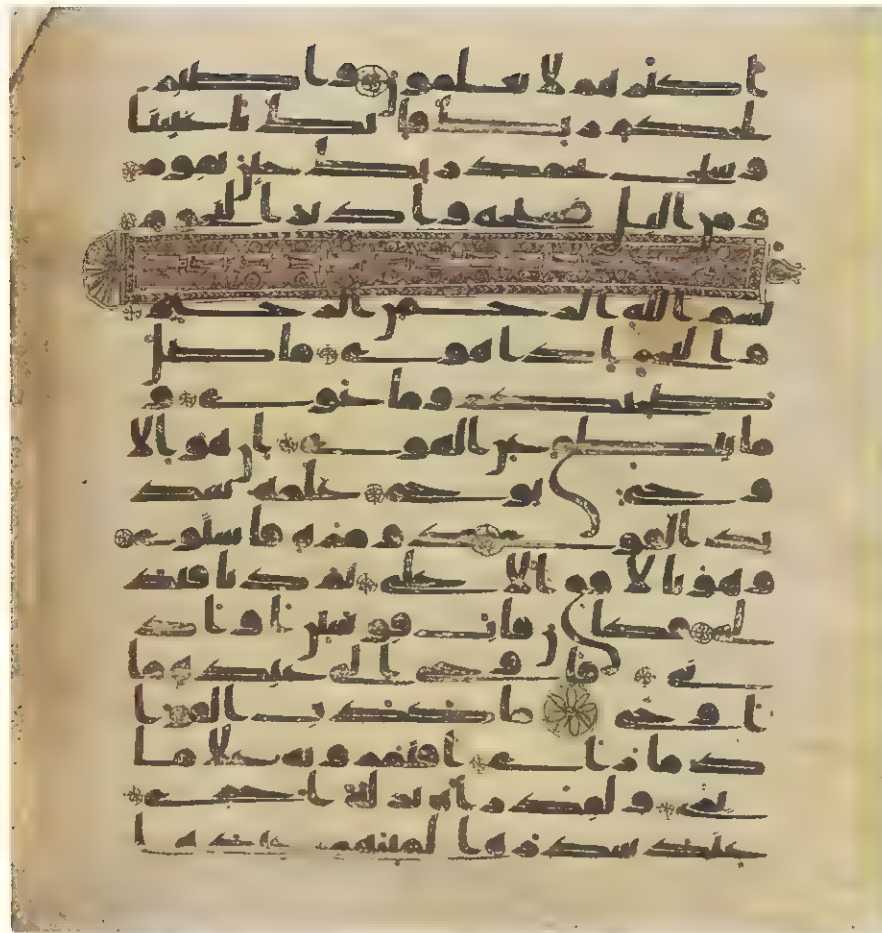 اكثرهم لا يعلمون واصبر
لحكم ربك فانك باعيننا
وسبح بحمد ربك حين تقوم
ومن الليل فسبحه وادبر النجوم
بسم الله الرحمن الرحيم
والنجم اذا هوى ما ضل
صحبكم وما غوى و
ما ينطق عن الهوى ان هو الا
وحي يوحى علمه شد
يد القوى ذو مرة فاستوى
وهو بالافق الاعلى ثم دنا فتد
لى فكان قاب قوسين او اد
نى فاوحى الى عبده ما
اوحى ما كذب الفوا
د ما راى افتمرونه على ما
يرى ولقد راه نزلة اخرى
عند سدرة المنتهى عندها